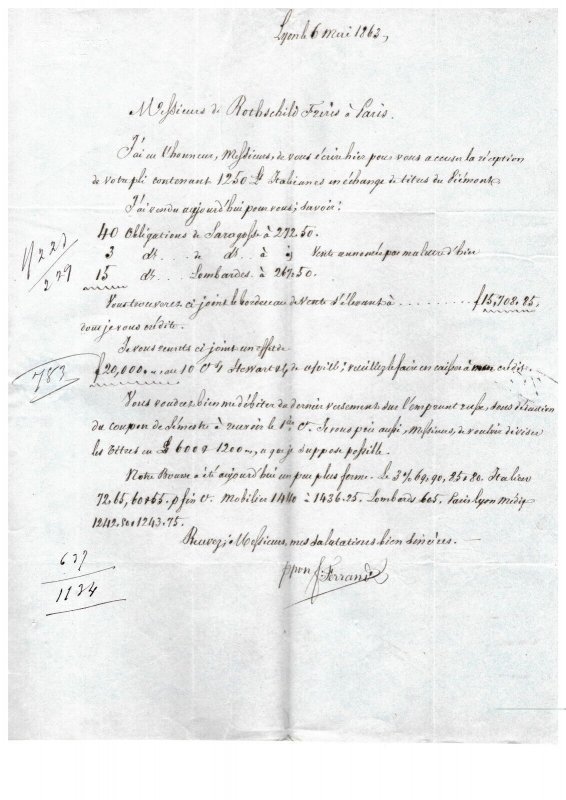 Lyon le 6 Mai 1863,
Messieurs de Rothschild Frères à Paris.
J'ai eu l'honneur, Messieurs, de vous écrire hier pour vous accuser la réception
de votre pli contenant 1250 £ Italiennes en échange de titres du Piémont
J'ai vendu aujourd'hui pour vous; savoir:
40 Obligations de Saragosse à 272.50.
3 dt. .. de .. dt. à Vente annoncée par ma lettre d'hier
15 dt. Lombardes à 267.50.
Vous trouverez ci joint le bordereau de vente s'élevant à .......... f 15,708.25,
dont je vous crédite.
Je vous remets ci joint un effet de
f 20,000. au 10 Ct Stewart de veuillez le faire encaisser à mon crédit.
Vous voudrez bien me débiter du dernier versement sur l'emprunt russe, sous déduction
du coupon de semestre à recevoir le 1er Ct. Je vous prie aussi, Messieurs, de vouloir diviser
les titres en £ 600 & 1200, ce que je suppose possible.
Notre Bourse a été aujourd'hui un peu plus ferme. Le 3% 69,90, 25 à 30. Italien
72.65, 60 & 65. p fin Ct. Mobilier 1440 à 1436.25. Lombards 605. Paris Lyon Médit
1242.50 à 1243.75.
Recevez, Messieurs, mes salutations bien sincères. —
ppon f. Ferrand
229
783
637
1134